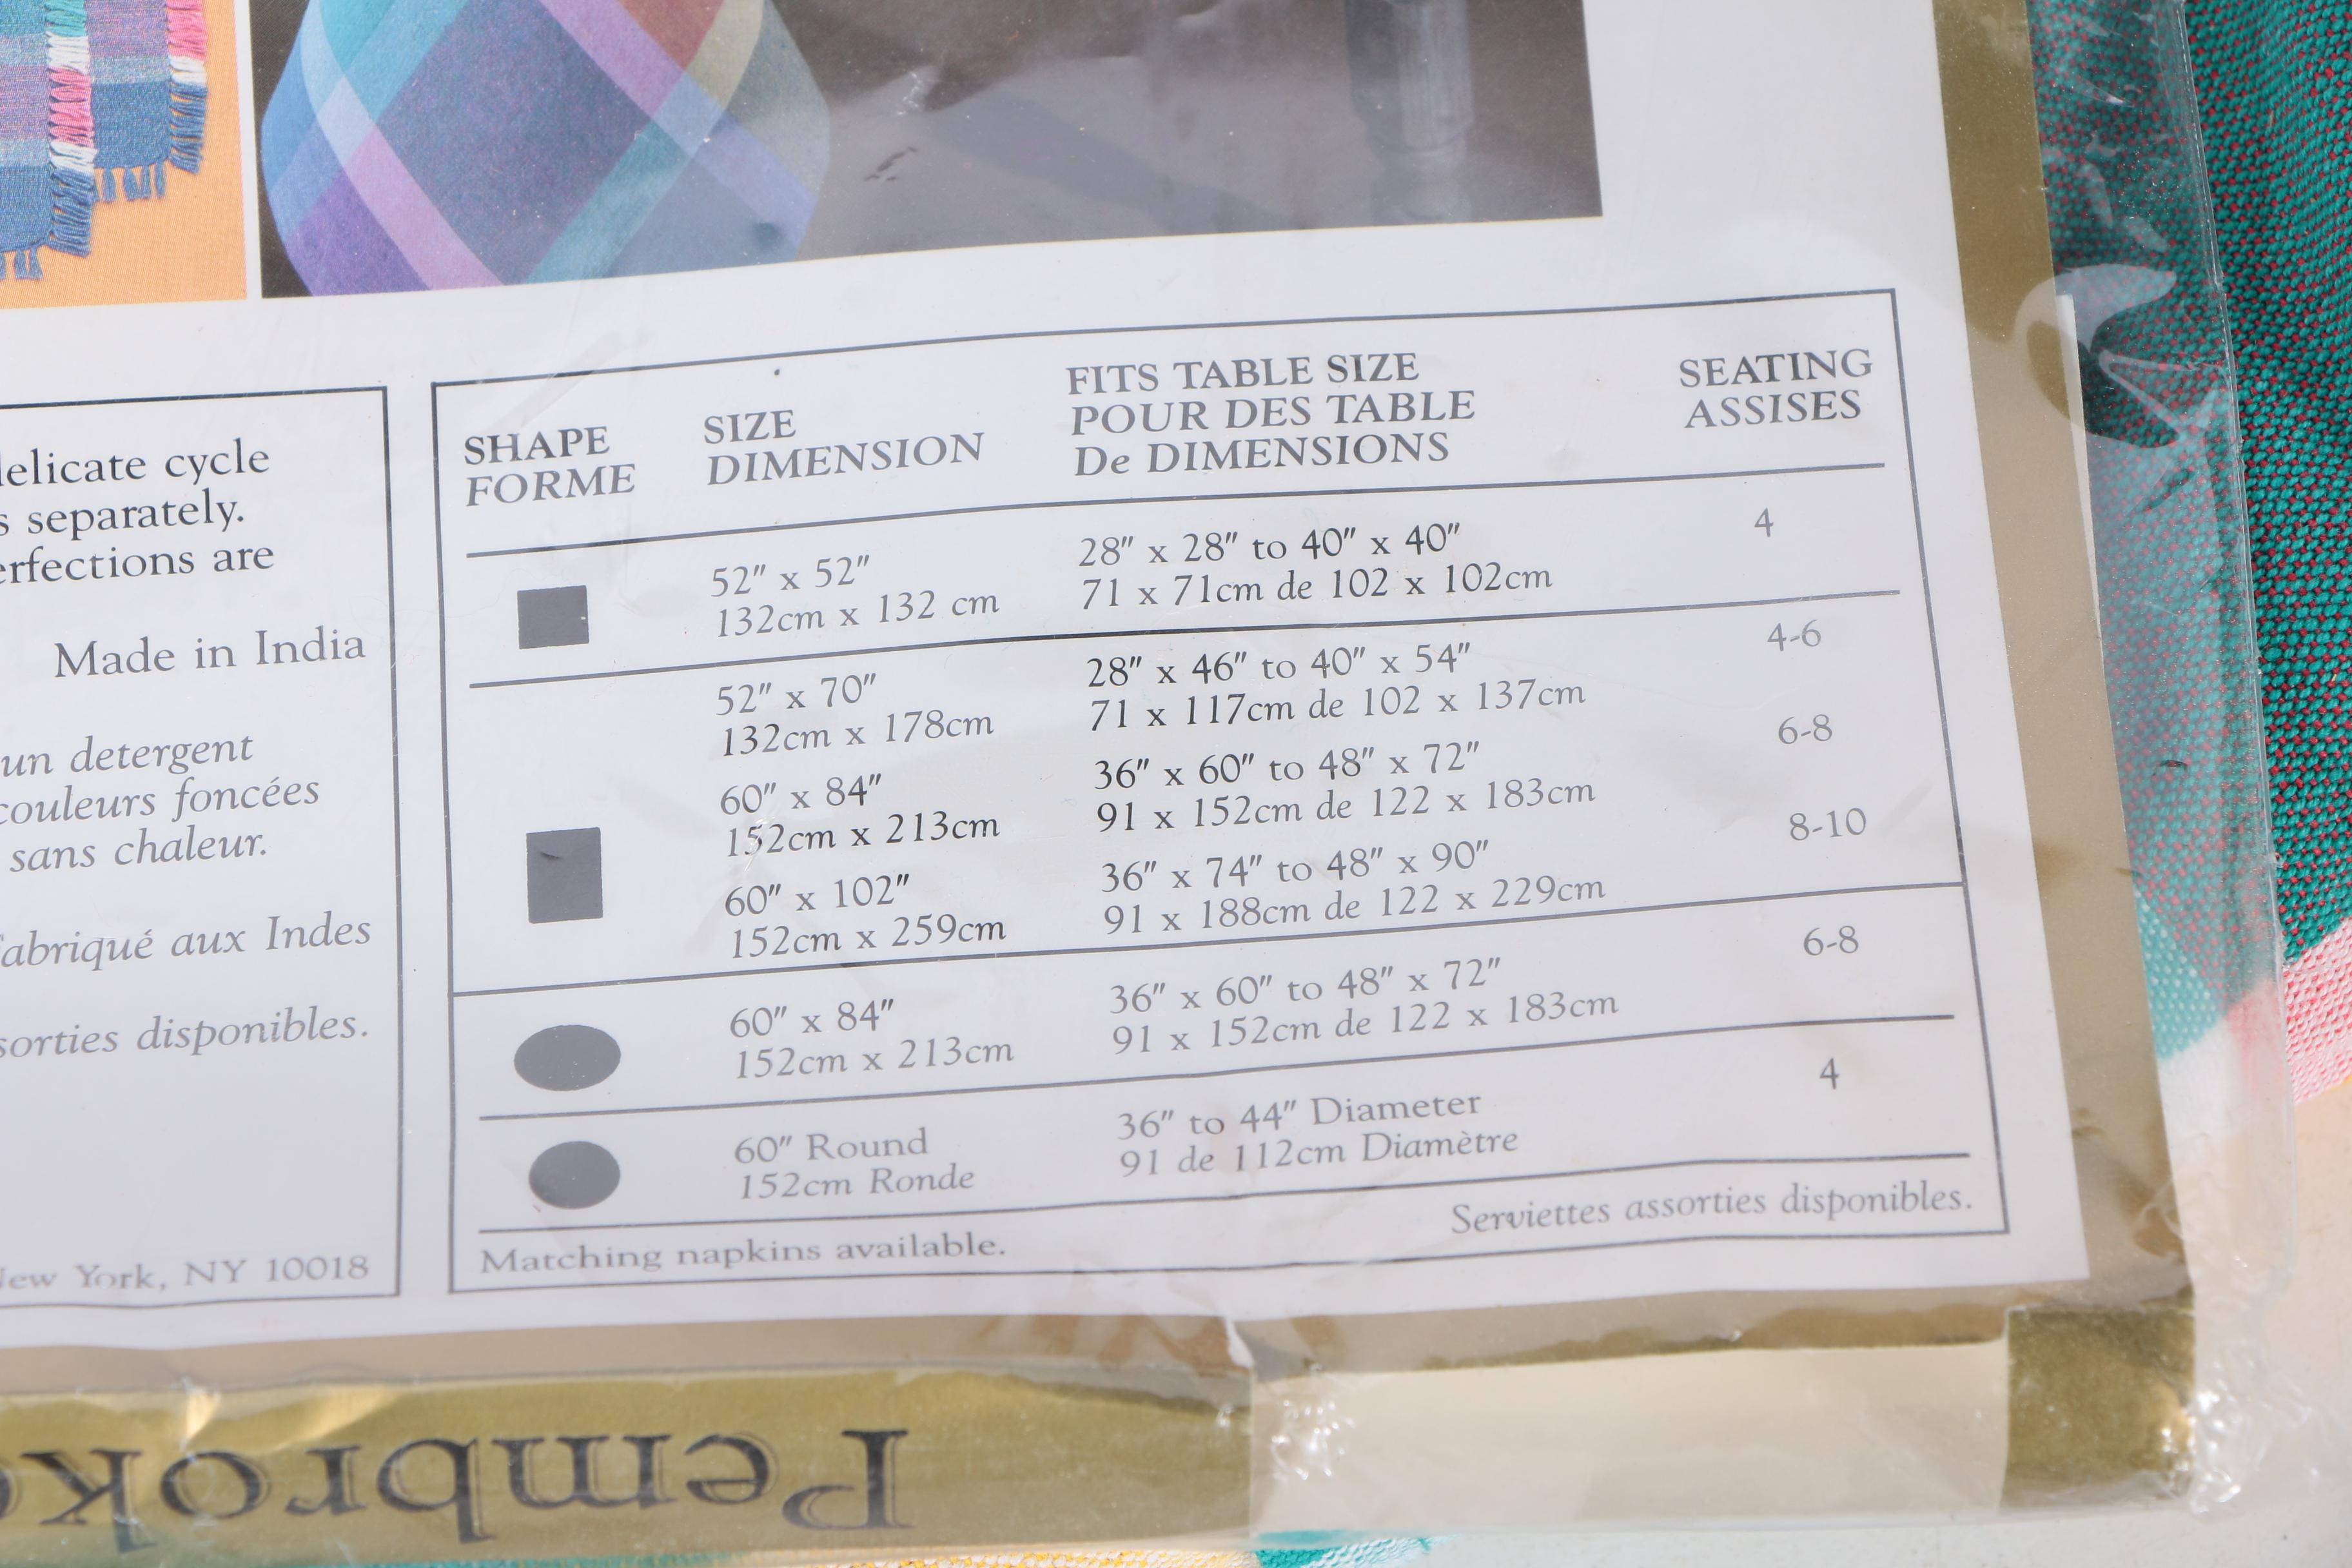 delicate cycle
s separately.
erfections are
Made in India
un detergent
couleurs foncées
sans chaleur.
Fabriqué aux Indes
sorties disponibles.
New York, NY 10018
SHAPE
FORME
SIZE
DIMENSION
FITS TABLE SIZE
POUR DES TABLE
De DIMENSIONS
SEATING
ASSISES
52" x 52"
132cm x 132 cm
28" x 28" to 40" x 40"
71 x 71cm de 102 x 102cm
4
52" x 70"
132cm x 178cm
28" x 46" to 40" x 54"
71 x 117cm de 102 x 137cm
4-6
60" x 84"
152cm x 213cm
36" x 60" to 48" x 72"
91 x 152cm de 122 x 183cm
6-8
60" x 102"
152cm x 259cm
36" x 74" to 48" x 90"
91 x 188cm de 122 x 229cm
8-10
60" x 84"
152cm x 213cm
36" x 60" to 48" x 72"
91 x 152cm de 122 x 183cm
6-8
60" Round
152cm Ronde
36" to 44" Diameter
91 de 112cm Diamètre
4
Matching napkins available.
Serviettes assorties disponibles.
Pembroke